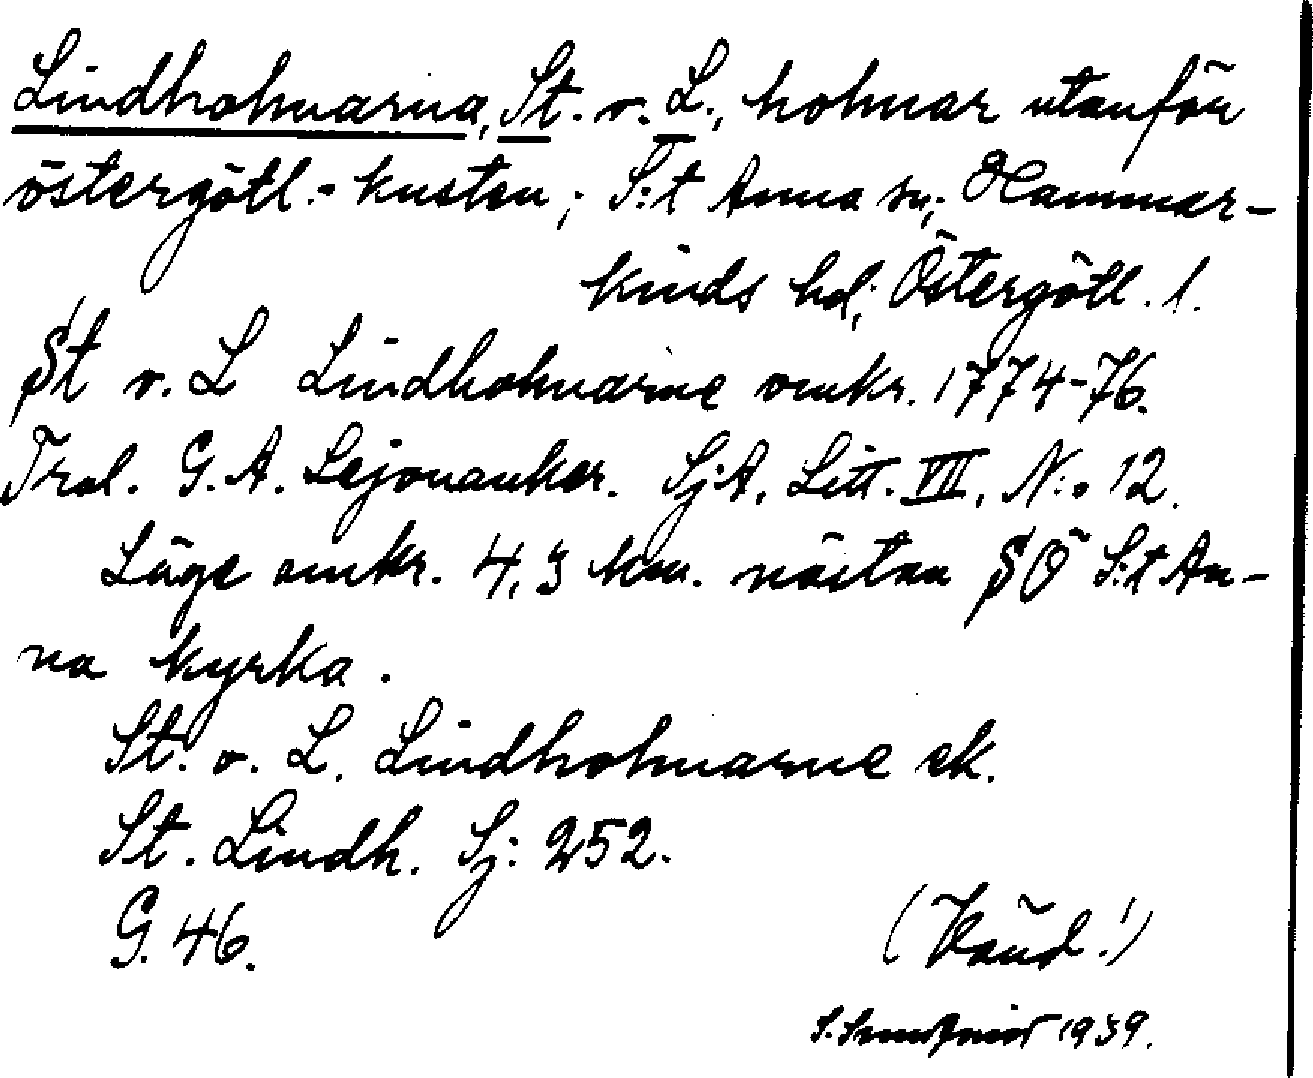 Lindholmarna, St. o. L., holmar utanför
östergötl.-kusten; S:t Anna sn; Hammar-
kinds hd; Östergötl. l.
St o. L Lindholmarne omkr. 1774-76.
Trol. G. A. Lejonanker. Sj:A. Litt. VII, N:o 12.
Läge omkr. 4,3 km. nästan SÖ S:t An-
na kyrka.
St. o. L. Lindholmarne ek.
St. Lindh. Sj: 252.
G. 46.
(Vänd!)
S. 1939.